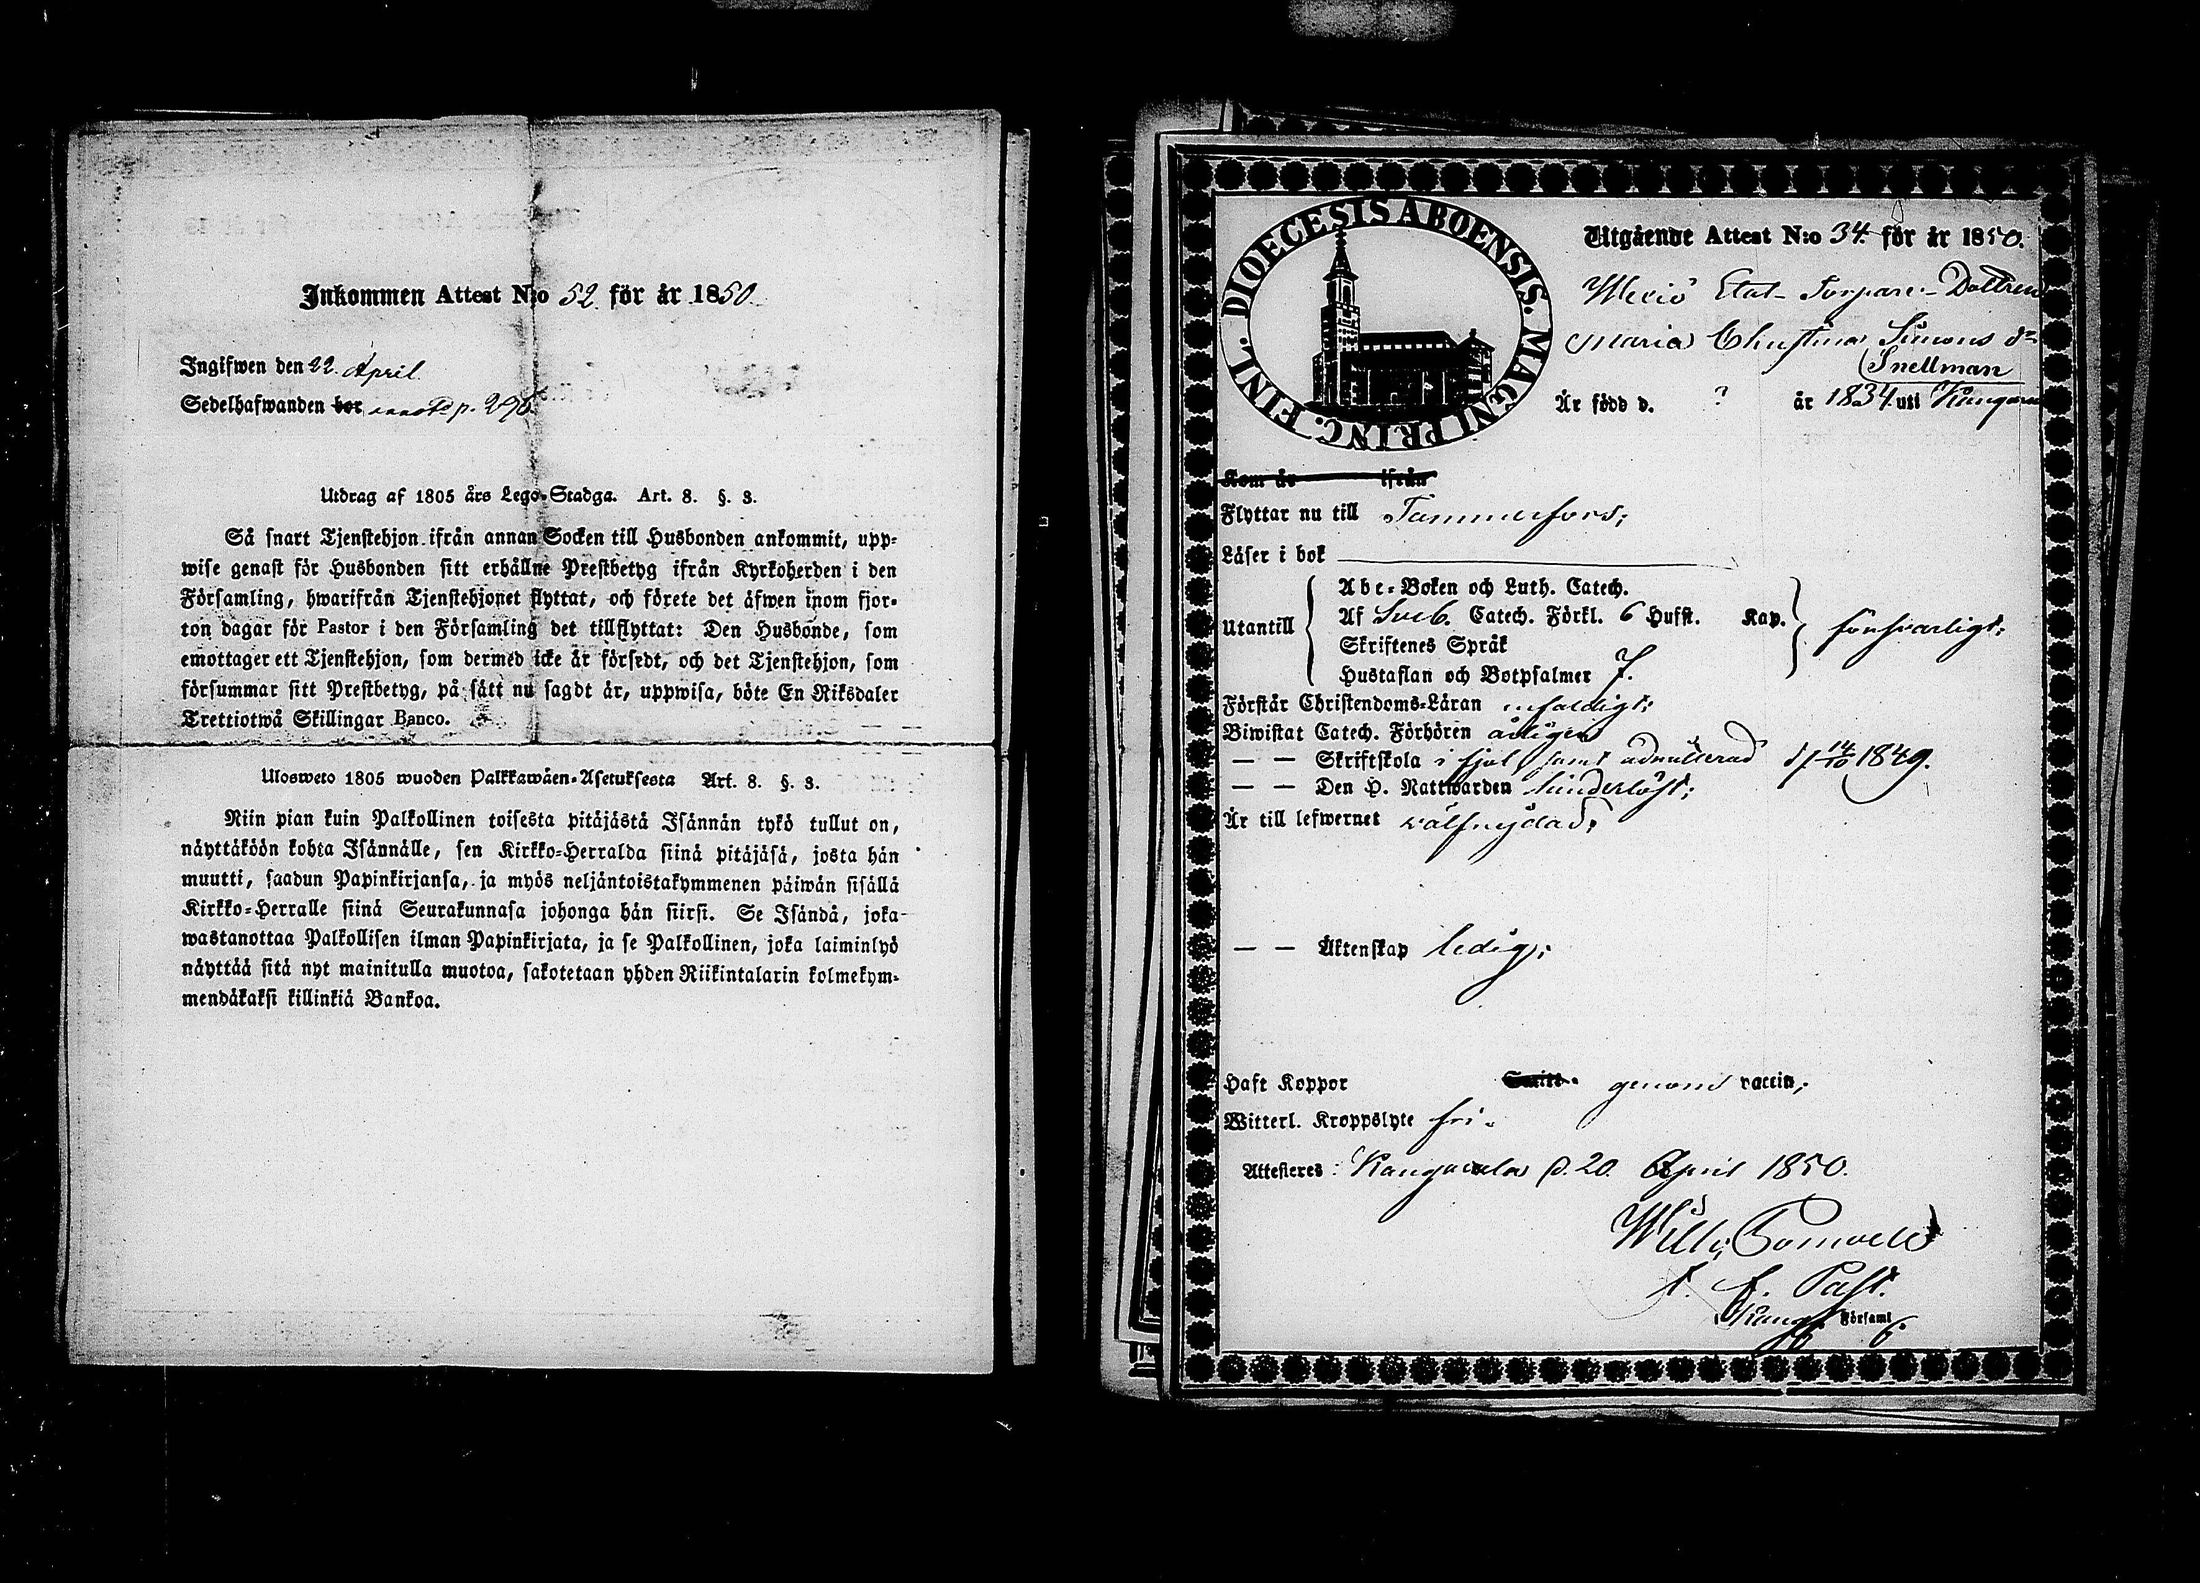 Inkommen Attest N:o 52. för år 1850.
Ingifwen den 22. April.
Sedelhafwanden bor p. 296
Utdrag af 1805 års Lego-Stadga. Art. 8. §. 3.
Så snart Tjenstehjon ifrån annan Socken till Husbonden ankommit, upp-
wise genast för Husbonden sitt erhållne Prestbetyg ifrån Kyrkoherden i den
Församling, hwarifrån Tjenstehjonet flyttat, och förete det äfwen inom fjor-
ton dagar för Pastor i den Församling det tillflyttat: Den Husbonde, som
emottager ett Tjenstehjon, som dermed icke är försedt, och det Tjenstehjon, som
försummar sitt Prestbetyg, på sätt nu sagdt är, uppwisa, böte En Riksdaler
Trettiotwå Skillingar Banco.
Ulosweto 1805 wuoden Palkkawäen-Asetuksesta Art. 8. §. 3.
Niin pian kuin Palkollinen toisesta pitäjästä Isännän tykö tullut on,
näyttäköön kohta Isännälle, sen Kirkko-Herralda siinä pitäjäsä, josta hän
muutti, saadun Papinkirjansa, ja myös neljäntoistakymmenen päiwän sisällä
Kirkko-Herralle siinä Seurakunnasa johonga hän siirsi. Se Isändä, joka
wastanottaa Palkollisen ilman Papinkirjata, ja se Palkollinen, joka laiminlyö
näyttää sitä nyt mainitulla muotoa, sakotetaan yhden Riikintalarin kolmekym-
mendäkaksi killinkiä Bankoa.
DIOECESIS ABOENSIS. MAGNI PRINC. FINL.
Utgående Attest N:o 34. för år 1850.
Wexiö Etat- Torpare- Dottren
Maria Christina Simons dr
Snellman
Är född d. ? år 1834 uti Kangasa
Kom år ifrån
Flyttar nu till Tammerfors;
Läser i bok
Utantill
Abc-Boken och Luth. Catech.
Af Sveb. Catech. Förkl. 6 Hufst. Kap.
Skriftenes Språk
Hustaflan och Botpsalmer 7.
försvarligt;
Förstår Christendoms-Läran enfaldigt;
Biwistat Catech. Förhören årligen
— — Skriftskola i fjol, samt admitterad d. 14/10 1849.
— — Den H. Nattwarden hinderlöst;
Är till lefwernet välfrejdad;
— — Äktenskap ledig;
Haft Koppor genom vaccin;
Witterl. Kroppslyte fri.
Attesteres: Kangasala d. 20. April 1850.
Wilh.
t. f. Past.
Kang. Församl.